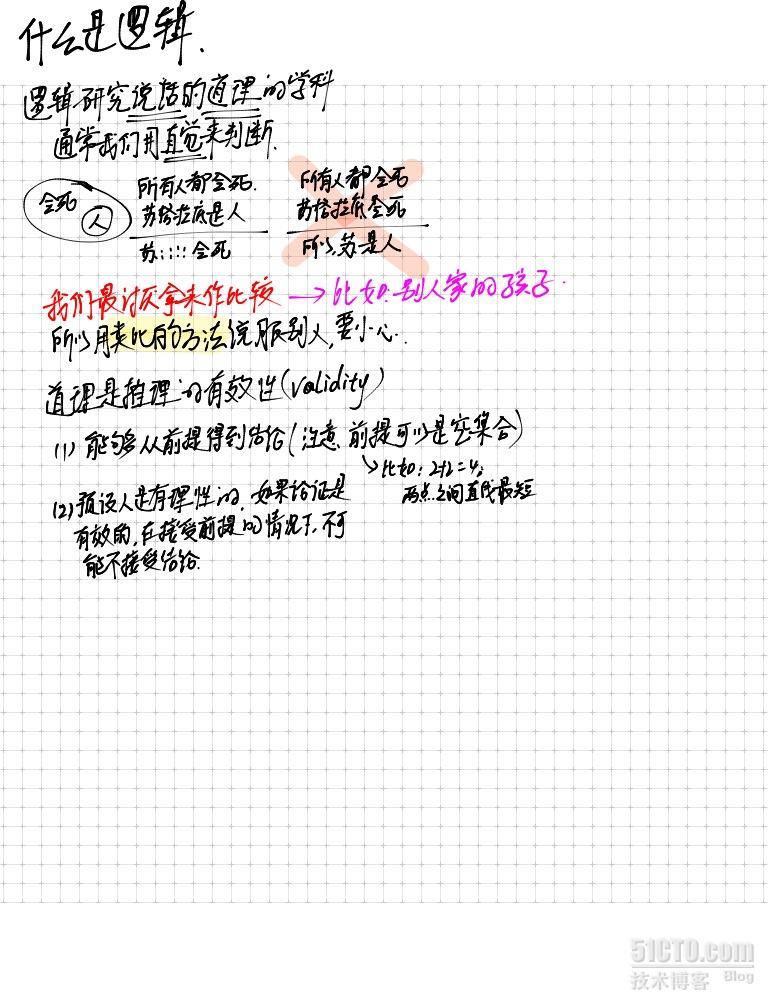 什么是逻辑.
逻辑研究说话的道理的学科
通常我们用直觉来判断.
会死
人
所有人都会死.
苏格拉底是人
苏:::: 会死
所有人都会死
苏格拉底会死
所以,苏是人
我们最讨厌拿来作比较 → 比如:别人家的孩子.
所以用类比的方法说服别人,要小心.
道理是推理的有效性(validity)
(1) 能够从前提得到结论(注意,前提可以是空集合)
比如: 2+2=4;
两点之间直线最短
(2) 预设人是有理性的,如果论证是
有效的,在接受前提的情况下,不可
能不接受结论.
51CTO.com
技术博客 Blog